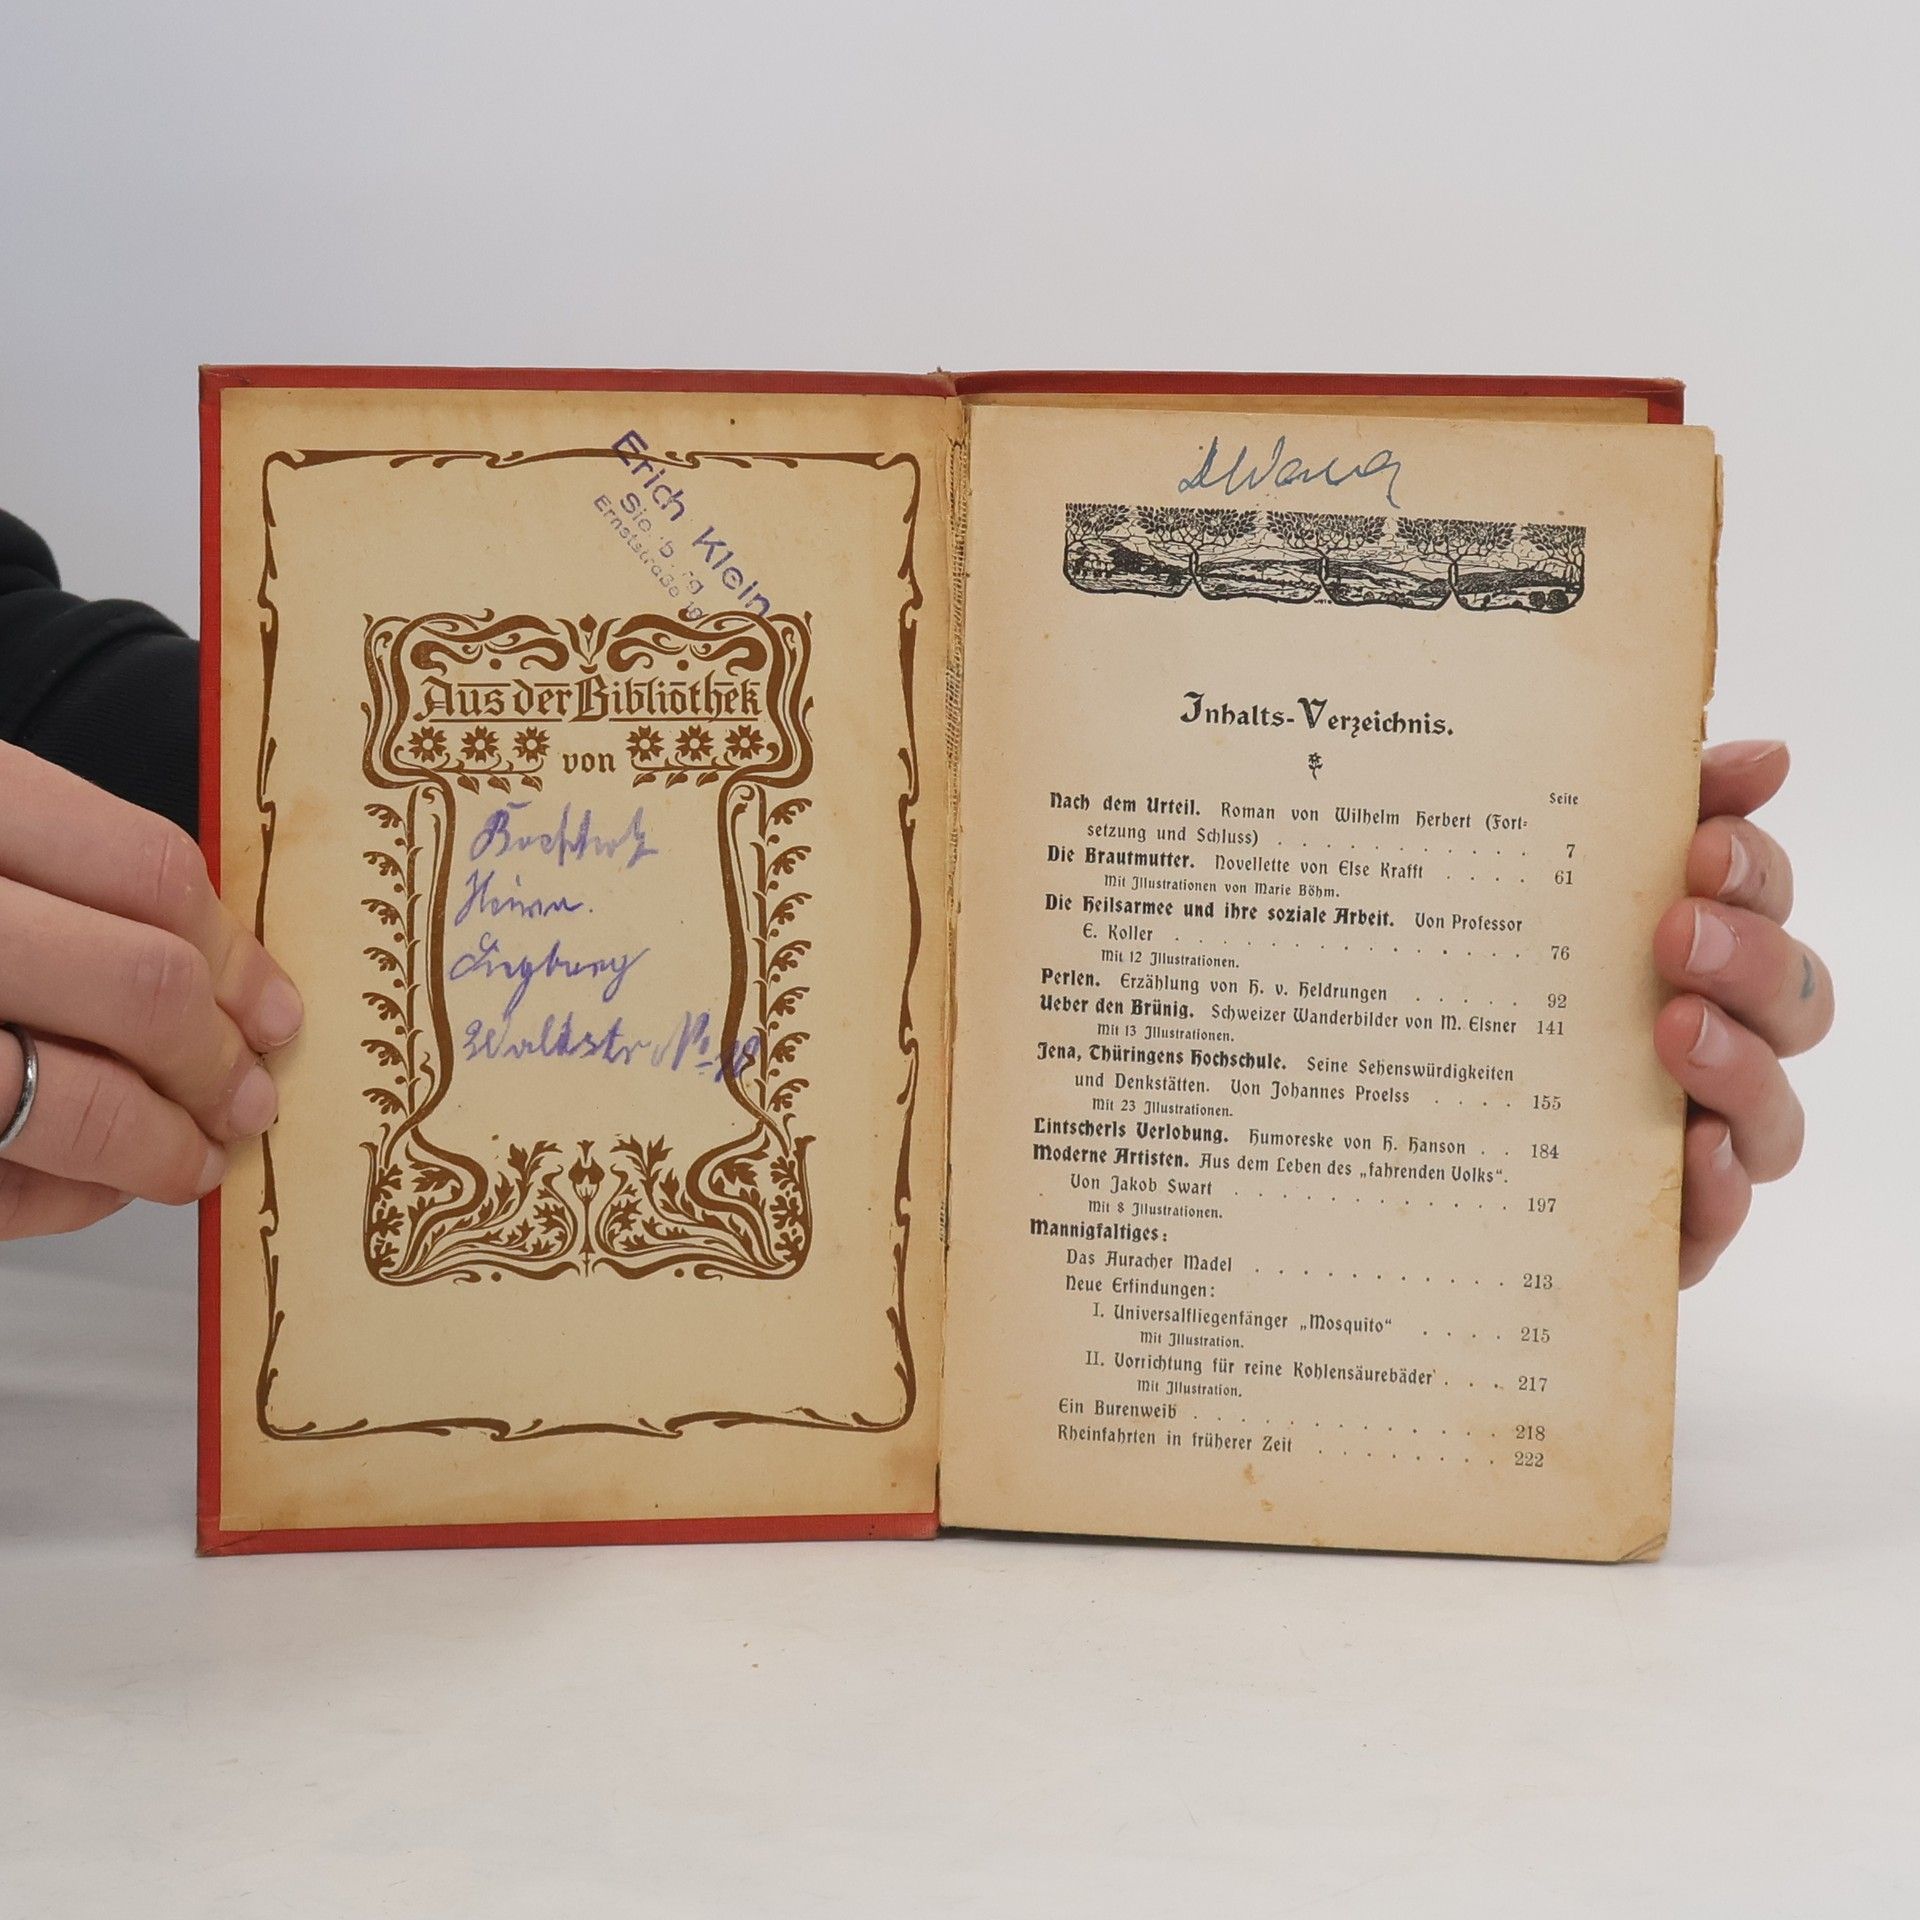 Erich Klein
Ernststraße 18
Aus der Bibliothek
von
Siegburg
Waldstr No 18
Inhalts-Verzeichnis.
Seite
Nach dem Urteil. Roman von Wilhelm Herbert (Fort-
setzung und Schluss) . . . . . . . . . . . 7
Die Brautmutter. Novellette von Else Krafft . . . . 61
Mit Illustrationen von Marie Böhm.
Die Heilsarmee und ihre soziale Arbeit. Von Professor
E. Koller . . . . . . . . . . . . . . . 76
Mit 12 Illustrationen.
Perlen. Erzählung von H. v. Heldrungen . . . . . 92
Ueber den Brünig. Schweizer Wanderbilder von M. Elsner 141
Mit 13 Illustrationen.
Jena, Thüringens Hochschule. Seine Sehenswürdigkeiten
und Denkstätten. Von Johannes Proelss . . . . 155
Mit 23 Illustrationen.
Lintscherls Verlobung. Humoreske von H. Hanson . . 184
Moderne Artisten. Aus dem Leben des „fahrenden Volks“.
Von Jakob Swart . . . . . . . . . . . . 197
Mit 8 Illustrationen.
Mannigfaltiges:
Das Auracher Madel . . . . . . . . . . . 213
Neue Erfindungen:
I. Universalfliegenfänger „Mosquito“ . . . . 215
Mit Illustration.
II. Vorrichtung für reine Kohlensäurebäder . . . 217
Mit Illustration.
Ein Burenweib . . . . . . . . . . . . . 218
Rheinfahrten in früherer Zeit . . . . . . . . 222